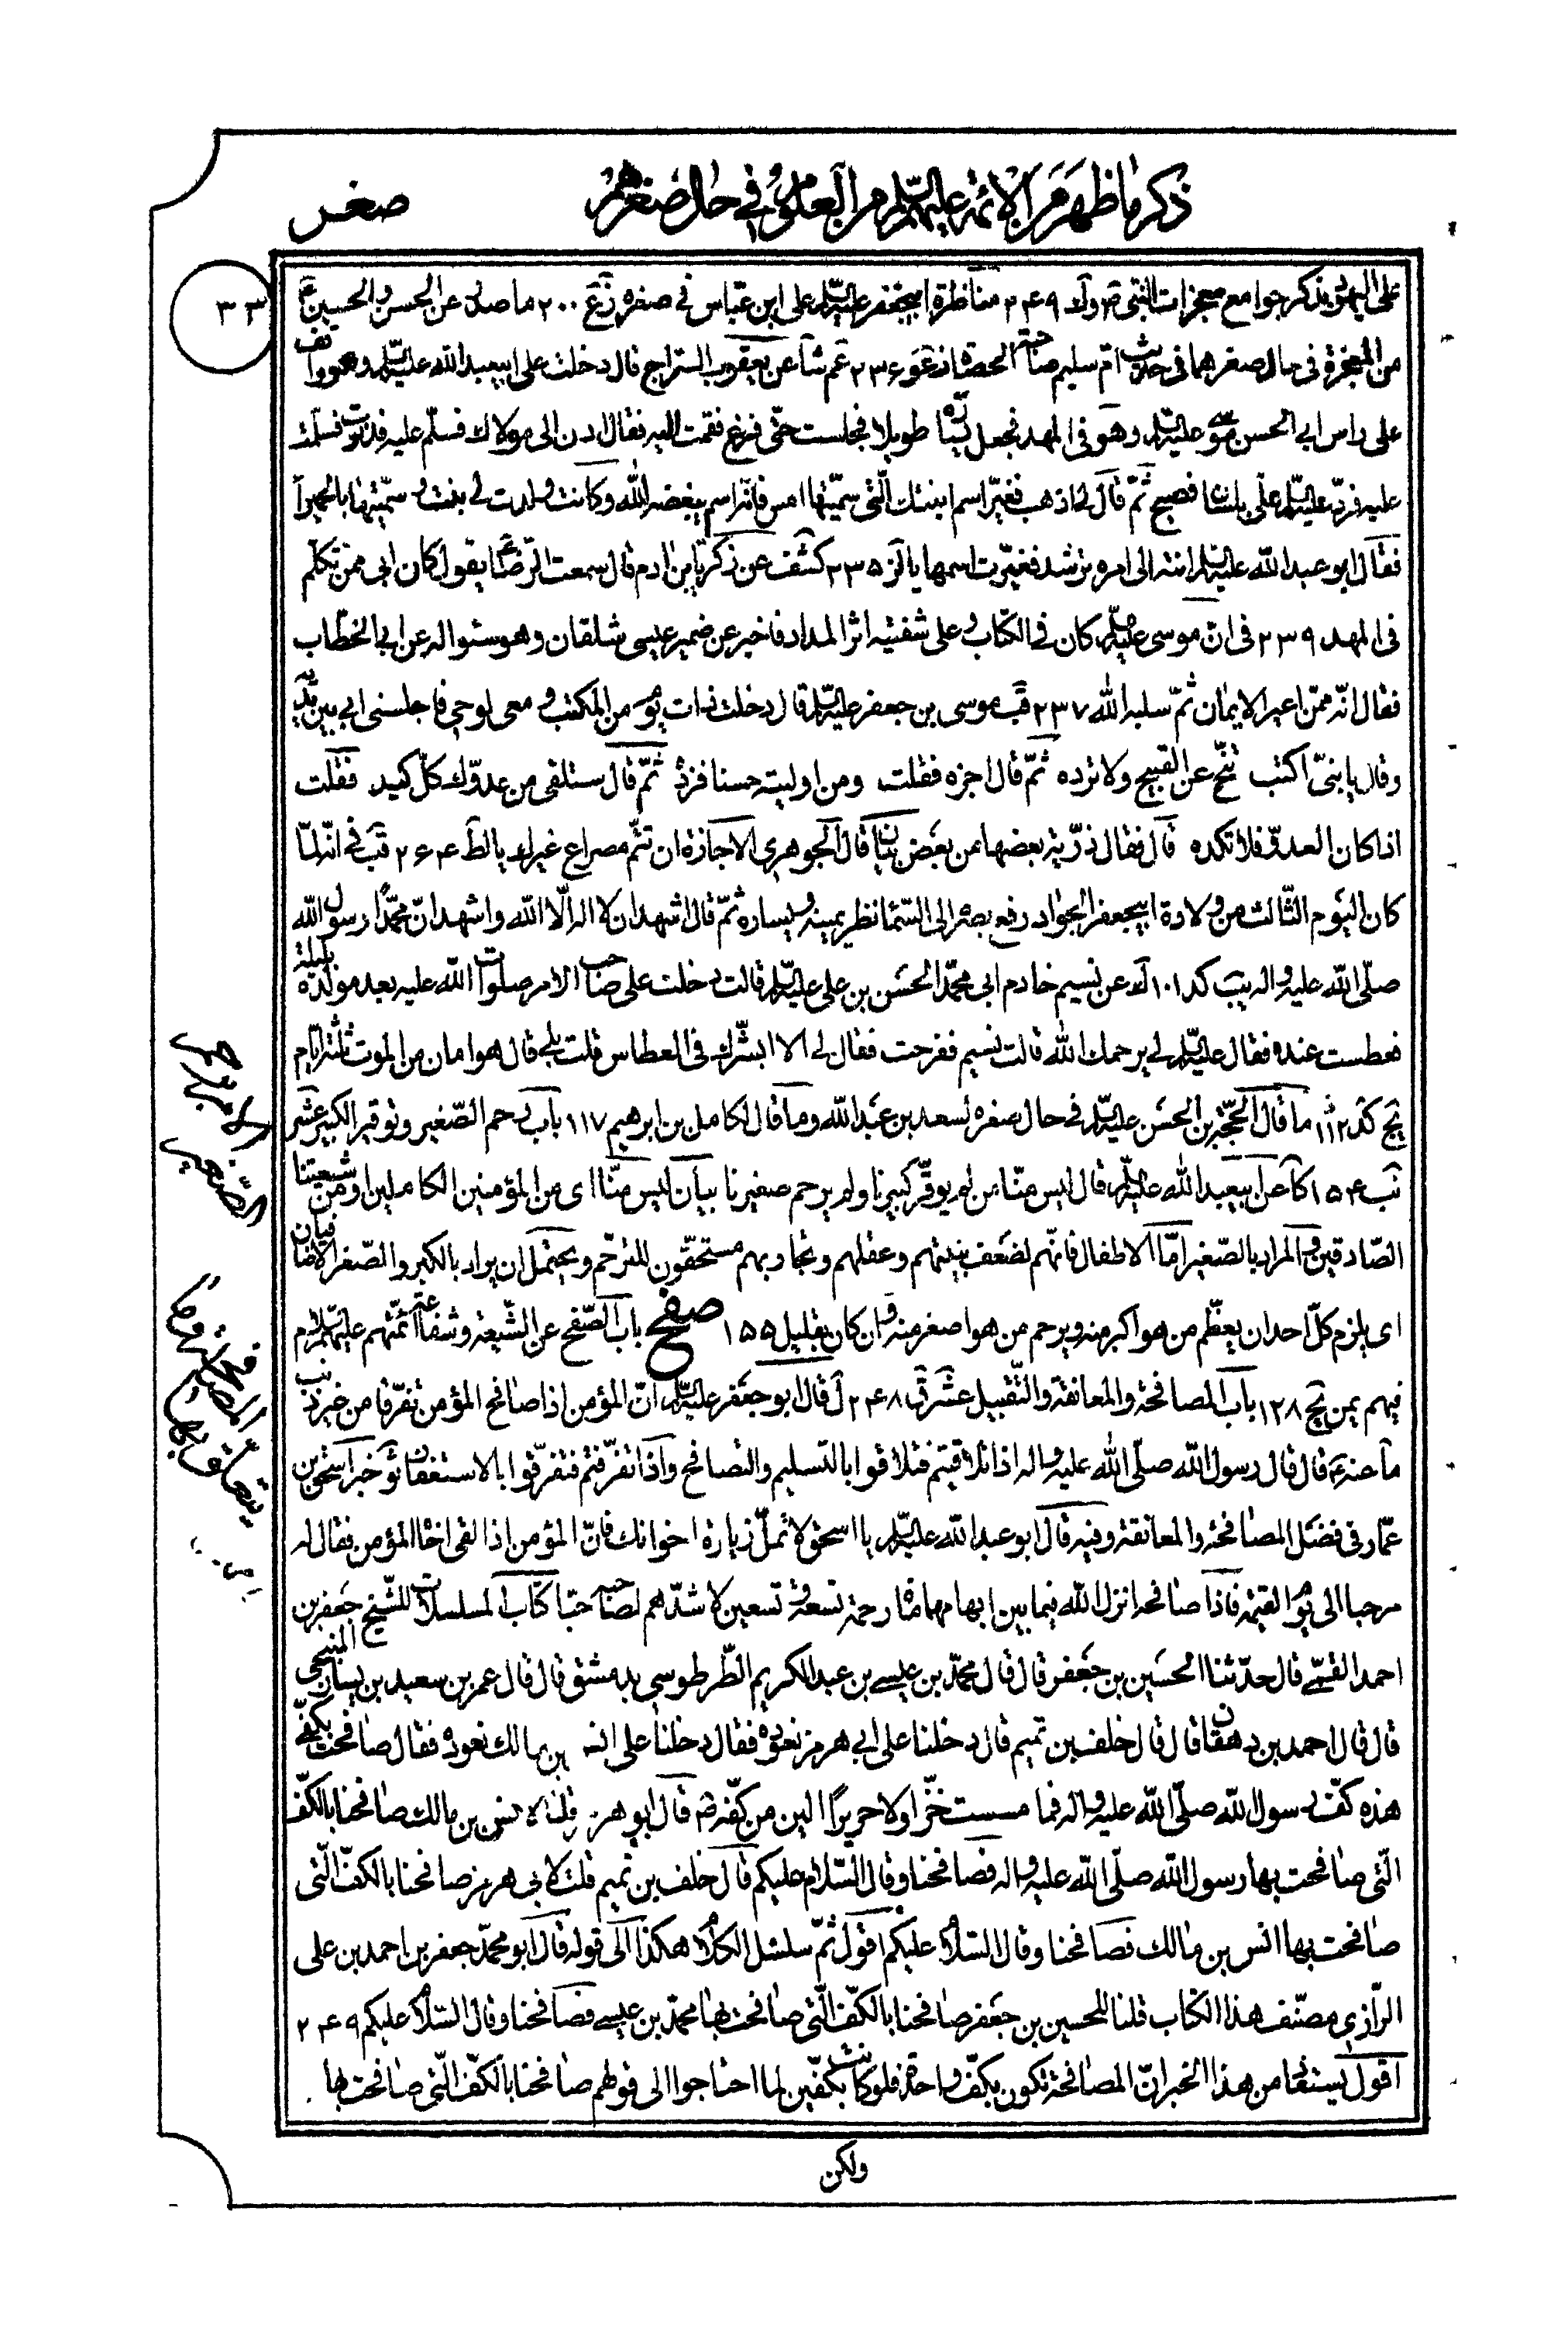 ذكر ما ظهر من الائمة عليهم السلام من العلوم في حال صغرهم
صغر
٣٣
على اليهود بذكر جوامع معجزات النبي ٢٤٩ مناظرة ابيجعفر عليه السلام على ابن عباس في صغره ٢٠٠ ما صدر عن الحسن والحسين
من المعجزة في حال صغرهما في حديث ام سليم صاحبة الحصاة ٢٣٦ عم شا عن يعقوب السراج قال دخلت على ابيعبد الله عليه السلام وهو واقف
على راس ابي الحسن موسى عليه السلام وهو في المهد فجعل يساره طويلا فجلست حتى فرغ فقمت اليه فقال ادن الى مولاك فسلم عليه فدنوت فسلمت
عليه فرد عليه السلام علي بلسان فصيح ثم قال لي اذهب فغير اسم ابنتك التي سميتها امس فانه اسم يبغضه الله وكانت ولدت لي بنت وسميتها بالحميرا
فقال ابو عبد الله عليه السلام انته الى امره ترشد فغيرت اسمها يا لز ٢٣٥ كشف عن زكريا بن ادم قال سمعت الرضا يقول كان ابي ممن تكلم
في المهد ٢٣٩ في ان موسى عليه السلام كان في الكتاب وعلى شفتيه اثر المداد فاخبر عن ضمير عيسى شلقان وهو سئواله عن ابي الخطاب
فقال انه ممن اعير الايمان ثم سلبه الله ٢٣٧ قب موسى بن جعفر عليه السلام قال دخلت ذات يوم من المكتب ومعي لوحي فاجلسني ابي بين يديه
وقال يا بني اكتب تنح عن القبيح ولا ترده ثم قال اجزه فقلت ومن اوليته حسنا فزده ثم قال ستلقى من عدوك كل كيد فقلت
اذا كان العدو فلا تكده قال فقال ذرية بعضها من بعض بيان قال الجوهري الاجازة ان تتم مصراع غيرك يا لط ٢٦٤ قب في انه لما
كان اليوم الثالث من ولادة ابيجعفر الجواد رفع بصره الى السماء نظر يمينه ويساره ثم قال اشهد ان لا اله الا الله واشهد ان محمدا رسول الله
صلى الله عليه واله يب كد ١٠١ ك عن نسيم خادم ابي محمد الحسن بن علي عليه السلام قالت دخلت على صاحب الامر صلوات الله عليه بعد مولده بليلة
فعطست عنده فقال عليه السلام لي يرحمك الله قالت نسيم ففرحت فقال لي الا ابشرك في العطاس قلت بلى قال هو امان من الموت ثلثة ايام
يج كد ١١٢ ما قال الحجة بن الحسن عليه السلام في حال صغره لسعد بن عبد الله وما قال لكامل بن ابرهيم ١١٧ باب رحم الصغير وتوقير الكبير عشر
نب ١٥٤ كا عن ابيعبد الله عليه السلام قال ليس منا من لم يوقر كبيرنا ولم يرحم صغيرنا بيان ليس منا اى من المؤمنين الكاملين او من شيعتنا
الصادقين والمراد بالصغير اما الاطفال فانهم لضعف بنيتهم وعقلهم وتجاربهم مستحقون للترحم ويحتمل ان يراد بالكبر والصغر الاضافيان
اى يلزم كل احد ان يعظم من هو اكبر منه ويرحم من هو اصغر منه وان كان بقليل ١٥٥ صفح باب الصفح عن الشيعة وشفاعة ائمتهم عليهم السلام
فيهم يمن يج ١٢٨ باب المصافحة والمعانقة والتقبيل عشر ٢٤٨ ل قال ابو جعفر عليه السلام ان المؤمن اذا صافح المؤمن تفرقا من غير ذنب
ما عنه قال قال رسول الله صلى الله عليه واله اذا تلاقيتم فتلاقوا بالتسليم والتصافح واذا تفرقتم فتفرقوا بالاستغفار ثو خبر اسحق بن
عمار في فضل المصافحة والمعانقة وفيه قال ابو عبد الله عليه السلام يا اسحق لا تمل زيارة اخوانك فان المؤمن اذا لقى اخاه المؤمن فقال له
مرحبا الى يوم القيمة فاذا صافحه انزل الله فيما بين ابهامهما مائة رحمة تسعة وتسعين لاشدهم لصاحبه حبا كتاب المسلسلات للشيخ جعفر بن
احمد القمي قال حدثنا الحسين بن جعفر قال قال محمد بن عيسى بن عبد الكريم الطرطوسي بدمشق قال قال عمر بن سعيد بن يسار المنبجي
قال قال احمد بن دهقان قال قال خلف بن تميم قال دخلنا على ابي هرمز نعوده فقال دخلنا على انس بن مالك نعوده فقال صافحت بكفي
هذه كف رسول الله صلى الله عليه واله فما مسست خزا ولا حريرا الين من كفه قال ابو هرمز قلنا لانس بن مالك صافحنا بالكف
التي صافحت بها رسول الله صلى الله عليه واله فصافحنا وقال السلام عليكم قال خلف بن تميم قلت لابي هرمز صافحنا بالكف التي
صافحت بها انس بن مالك فصافحنا وقال السلام عليكم اقول ثم سلسل الكلام هكذا الى قوله قال ابو محمد جعفر بن احمد بن علي
الرازي مصنف هذا الكتاب قلنا للحسين بن جعفر صافحنا بالكف التي صافحت بها محمد بن عيسى فصافحنا وقال السلام عليكم ٢٤٩
اقول يستفاد من هذا الخبر ان المصافحة تكون بكف واحدة فلو كانت بكفين لما احتاجوا الى قولهم صافحنا بالكف التي صافحت بها
الامر برحم
الصغير
في المصافحة وما
يتعلق بها
ولكن